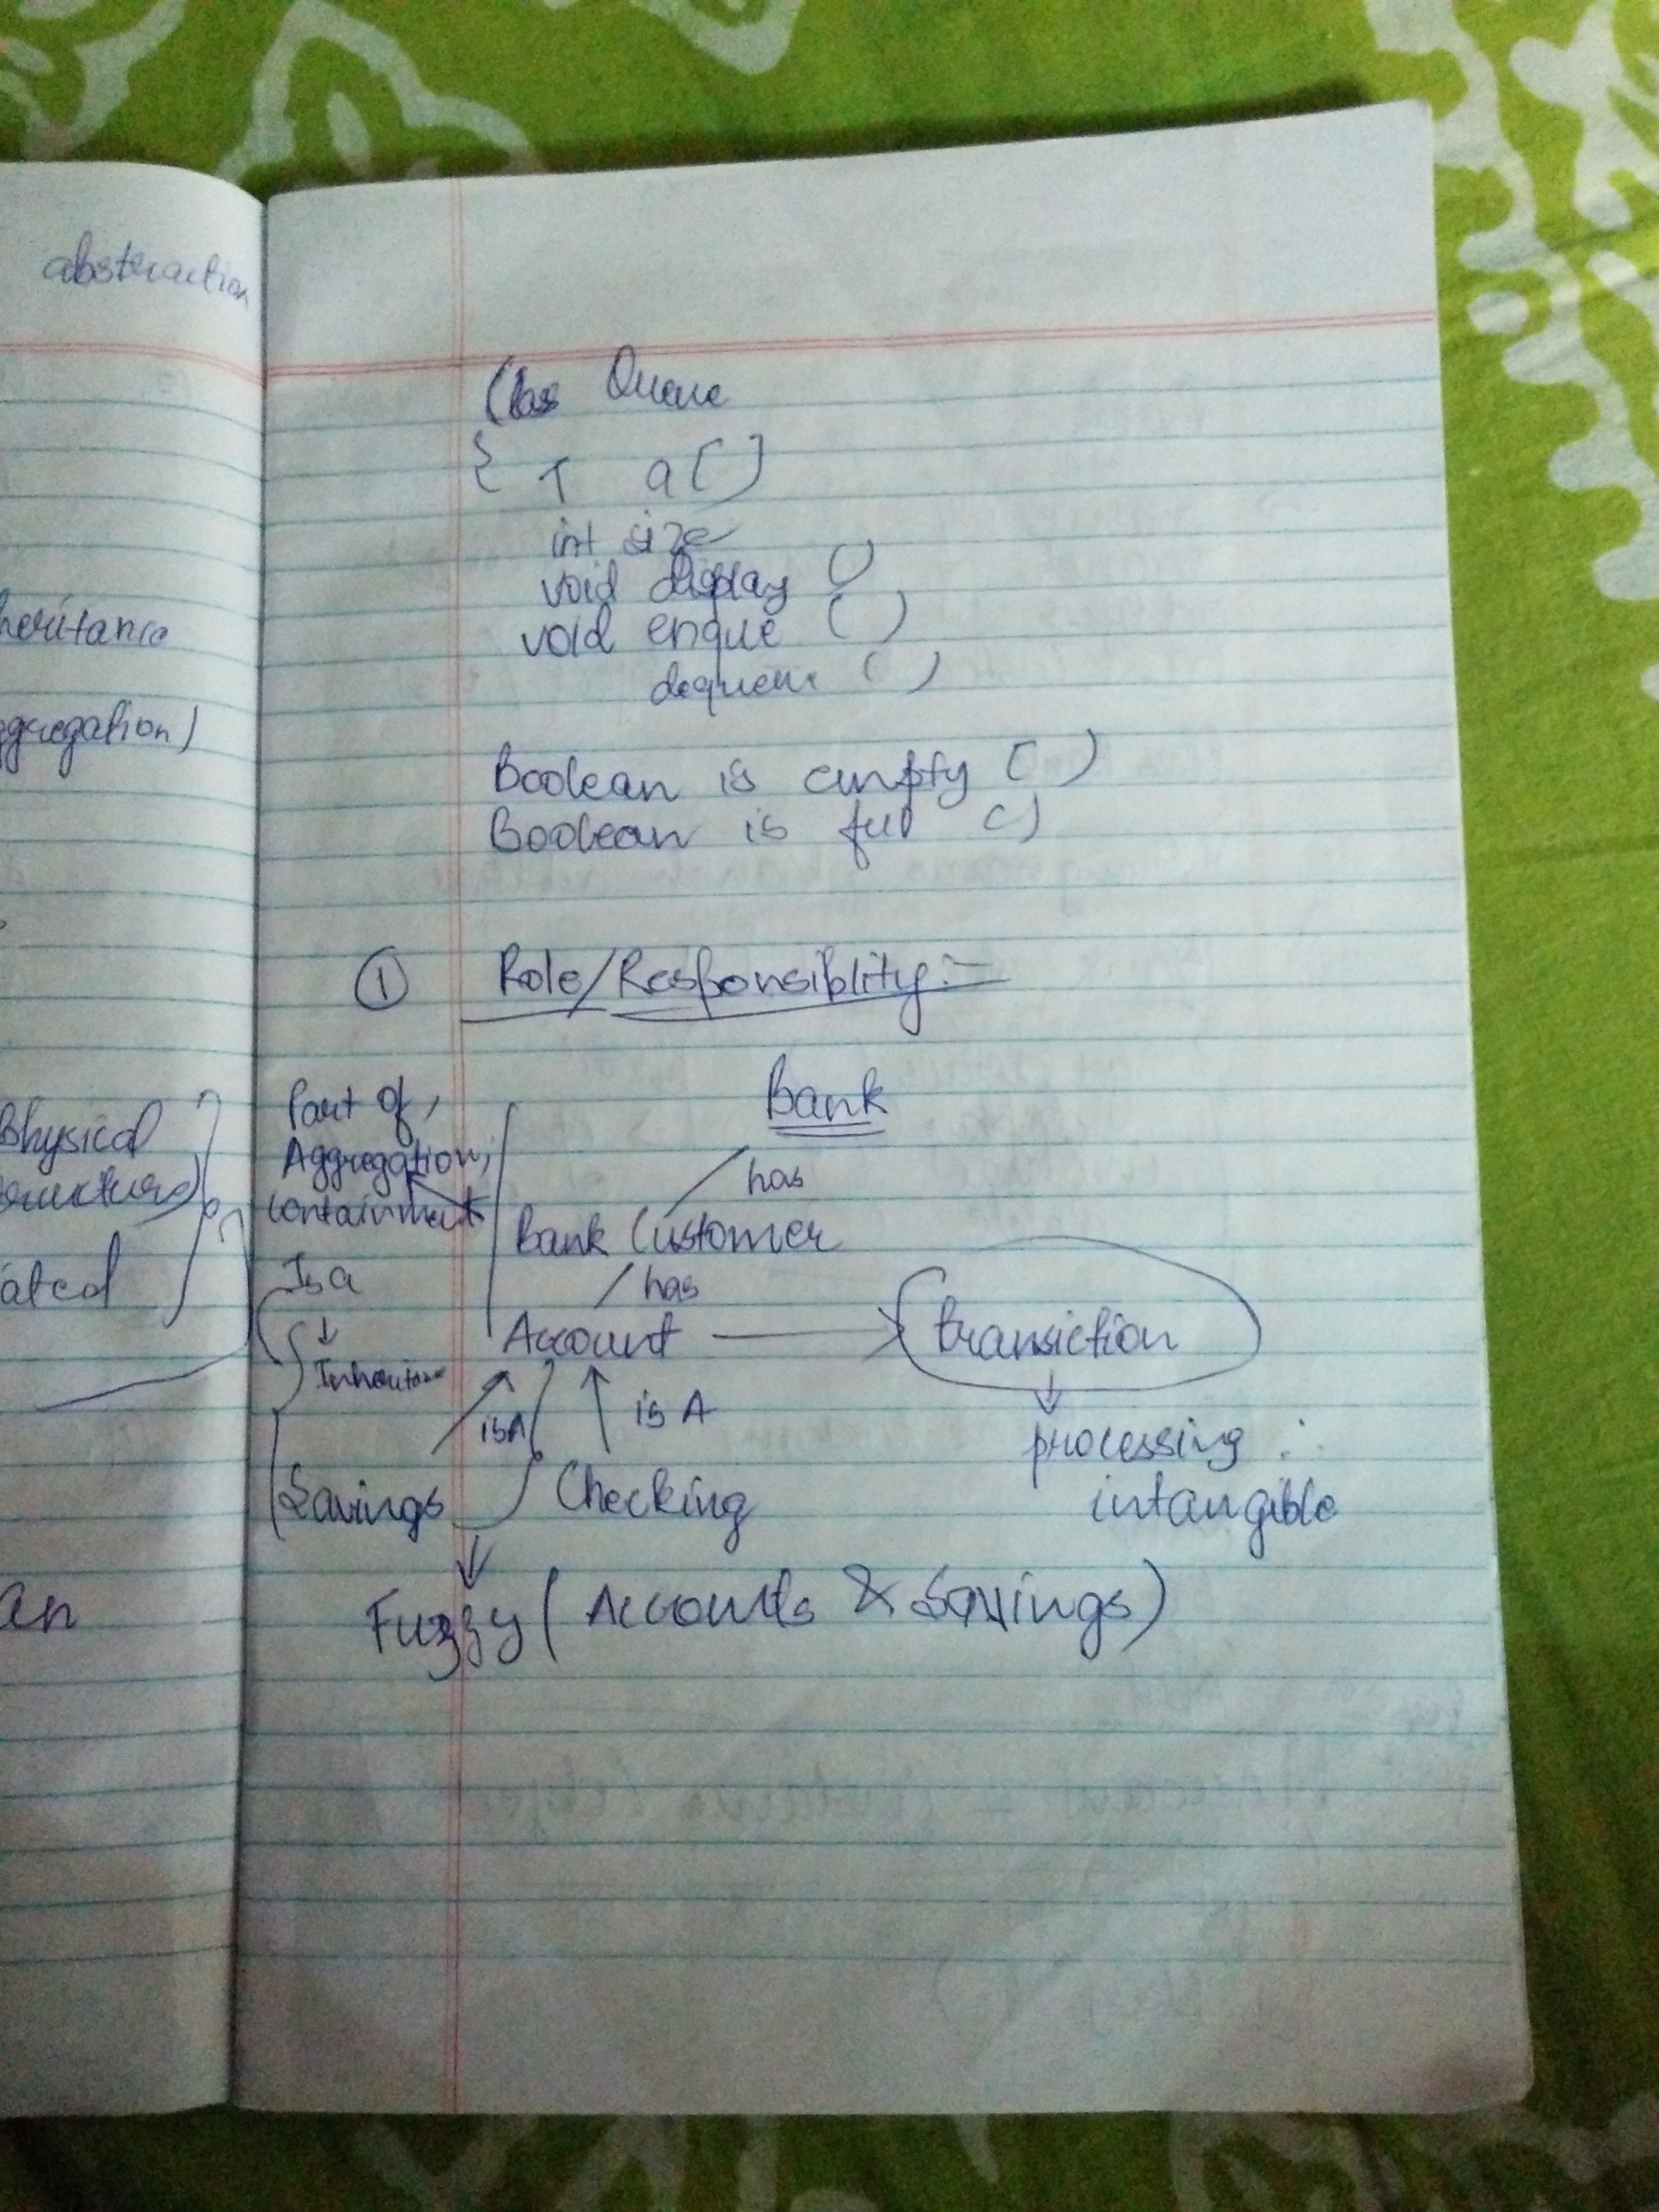 abstraction
heritance
ggregation)
Physical
structure)
ated
an
Class Queue
{ T a[]
int size
void display ()
void enque ()
dequeue ()
Boolean is empty ()
Boolean is full ()
① Role/Responsiblity:-
Bank
has
Part of,
Aggregation,
containment
Bank Customer
has
Is a
↓
Inheritance
Account → transiction
is A
is A
processing ∴
intangible
Savings
Checking
Fuzzy (Accounts & Savings)